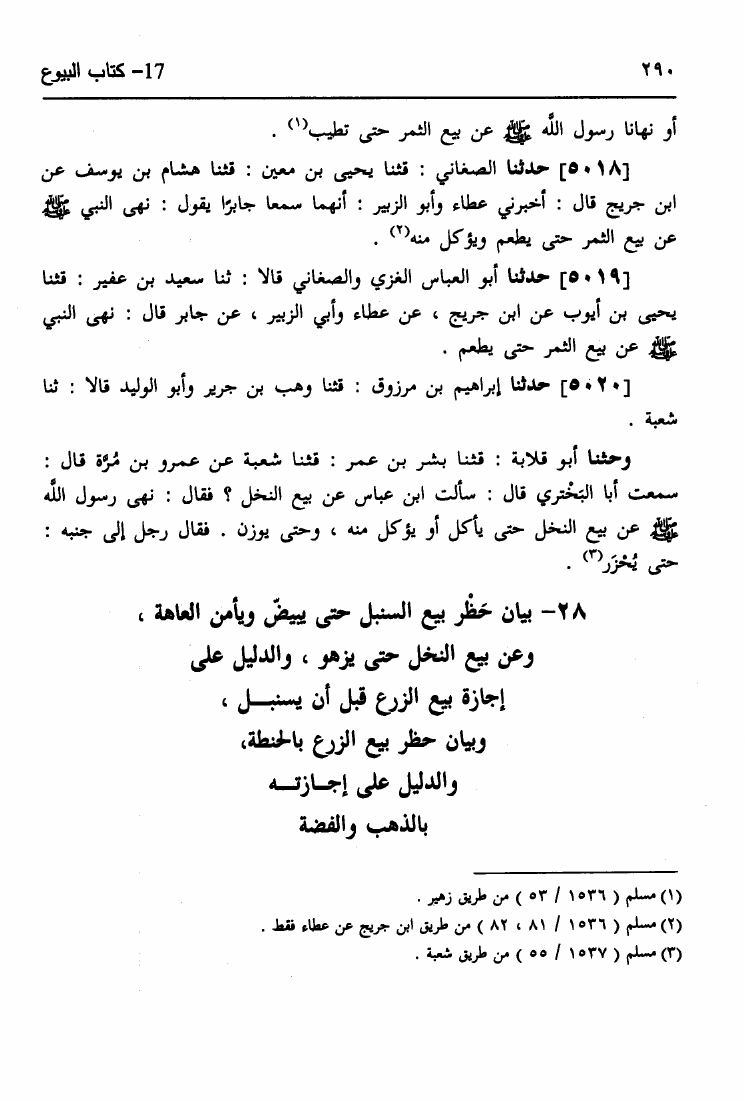 ٢٩٠
17- كتاب البيوع
أو نهانا رسول اللَّه ﷺ عن بيع الثمر حتى تطيب(١) .
[٥٠١٨] حدثنا الصغاني : قثنا يحيى بن معين : قثنا هشام بن يوسف عن
ابن جريج قال : أخبرني عطاء وأبو الزبير : أنهما سمعا جابرًا يقول : نهى النبي ﷺ
عن بيع الثمر حتى يطعم ويؤكل منه(٢) .
[٥٠١٩] حدثنا أبو العباس الغزي والصغاني قالا : ثنا سعيد بن عفير : قثنا
يحيى بن أيوب عن ابن جريج ، عن عطاء وأبي الزبير ، عن جابر قال : نهى النبي
ﷺ عن بيع الثمر حتى يطعم .
[٥٠٢٠] حدثنا إبراهيم بن مرزوق : قثنا وهب بن جرير وأبو الوليد قالا : ثنا
شعبة .
وحثنا أبو قلابة : قثنا بشر بن عمر : قثنا شعبة عن عمرو بن مُرَّة قال :
سمعت أبا البَخْتري قال : سألت ابن عباس عن بيع النخل ؟ فقال : نهى رسول اللَّه
ﷺ عن بيع النخل حتى يأكل أو يؤكل منه ، وحتى يوزن . فقال رجل إلى جنبه :
حتى يُحْزَر(٣) .
٢٨- بيان حَظْر بيع السنبل حتى يبيضّ ويأمن العاهة ،
وعن بيع النخل حتى يزهو ، والدليل على
إجازة بيع الزرع قبل أن يسنبـــل ،
وبيان حظر بيع الزرع بالحنطة،
والدليل على إجــازتـــه
بالذهب والفضة
(١) مسلم ( ١٥٣٦ / ٥٣ ) من طريق زهير .
(٢) مسلم ( ١٥٣٦ / ٨١ ، ٨٢ ) من طريق ابن جريج عن عطاء فقط .
(٣) مسلم ( ١٥٣٧ / ٥٥ ) من طريق شعبة .